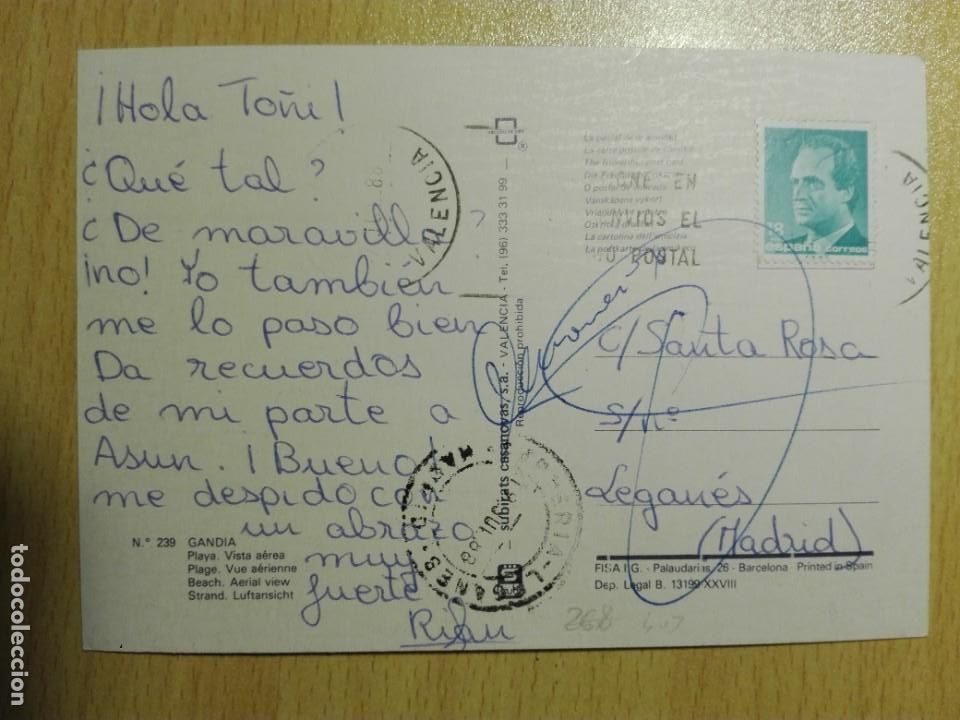 ¡Hola Toñi!
¿Qué tal?
¿De maravilla?
¡no! Yo también
me lo paso bien
Da recuerdos
de mi parte a
Asun. ¡Bueno!
me despido con
un abrazo
muy
fuerte
N.º 239 GANDIA
Playa. Vista aérea
Plage. Vue aérienne
Beach. Aerial view
Strand. Luftansicht
VALENCIA
subirats casanovas, s.a. - VALENCIA - Tel. (96) 333 31 99
Reproducción prohibida
EN
EL
POSTAL
18
españa correos
VALENCIA
C/ Santa Rosa
s/nº
Leganés
(Madrid)
FISA I.G. - Palaudarias, 26 - Barcelona Printed in Spain
Dep. Legal B. 13199 XXVIII
268
todocoleccion.net